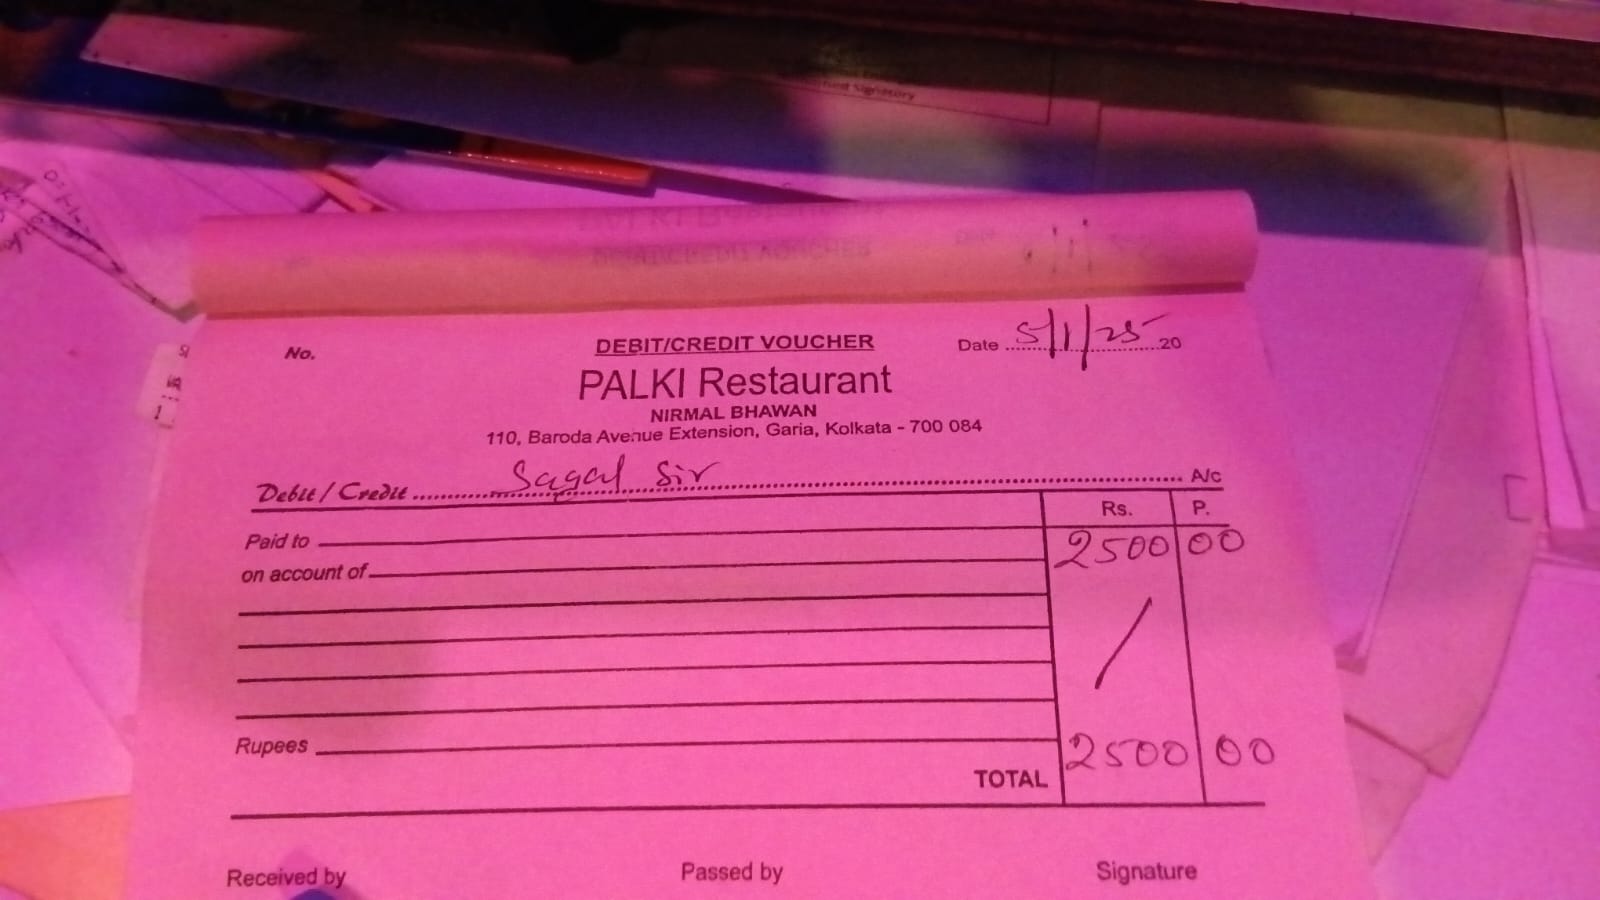 ed Signatory
No.
DEBIT/CREDIT VOUCHER
Date 5/1/25 20
PALKI Restaurant
NIRMAL BHAWAN
110, Baroda Avenue Extension, Garia, Kolkata - 700 084
Debit / Credit Sagal Sir A/c
Rs. P.
Paid to 2500 00
on account of
/
Rupees
TOTAL 2500 00
Received by Passed by Signature